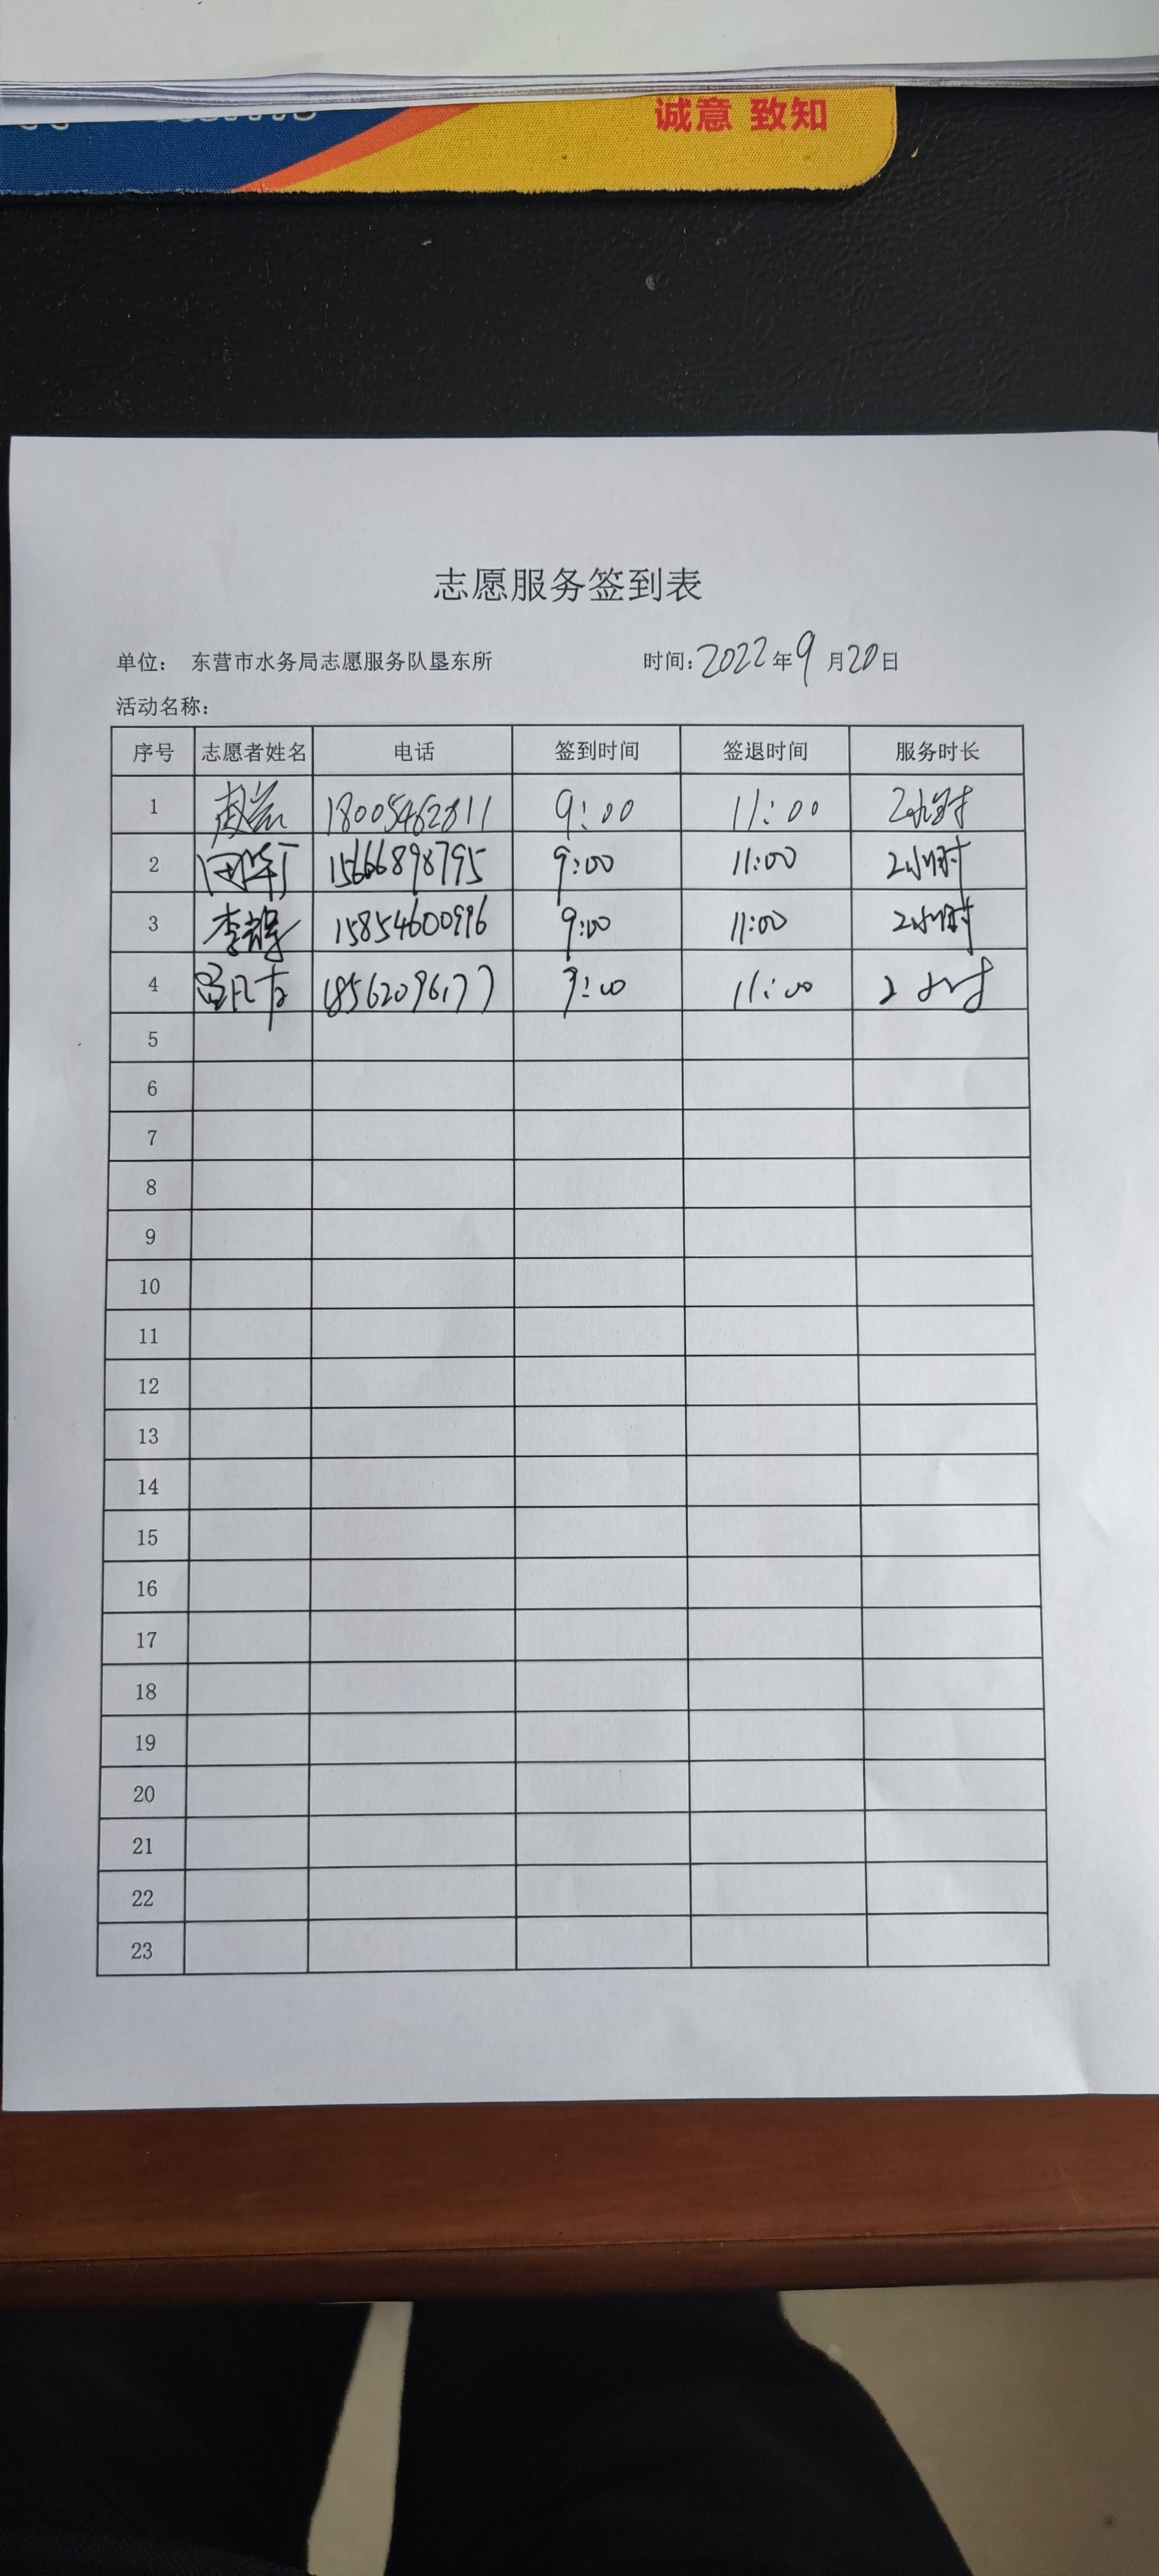 诚意 致知
志愿服务签到表
单位： 东营市水务局志愿服务队垦东所 时间：2022年9月20日
活动名称：
序号 志愿者姓名 电话 签到时间 签退时间 服务时长
1 18005462811 9:00 11:00 2小时
2 15666898795 9:00 11:00 2小时
3 李辉 15854600996 9:00 11:00 2小时
4 18562096177 9:00 11:00 2小时
5
6
7
8
9
10
11
12
13
14
15
16
17
18
19
20
21
22
23